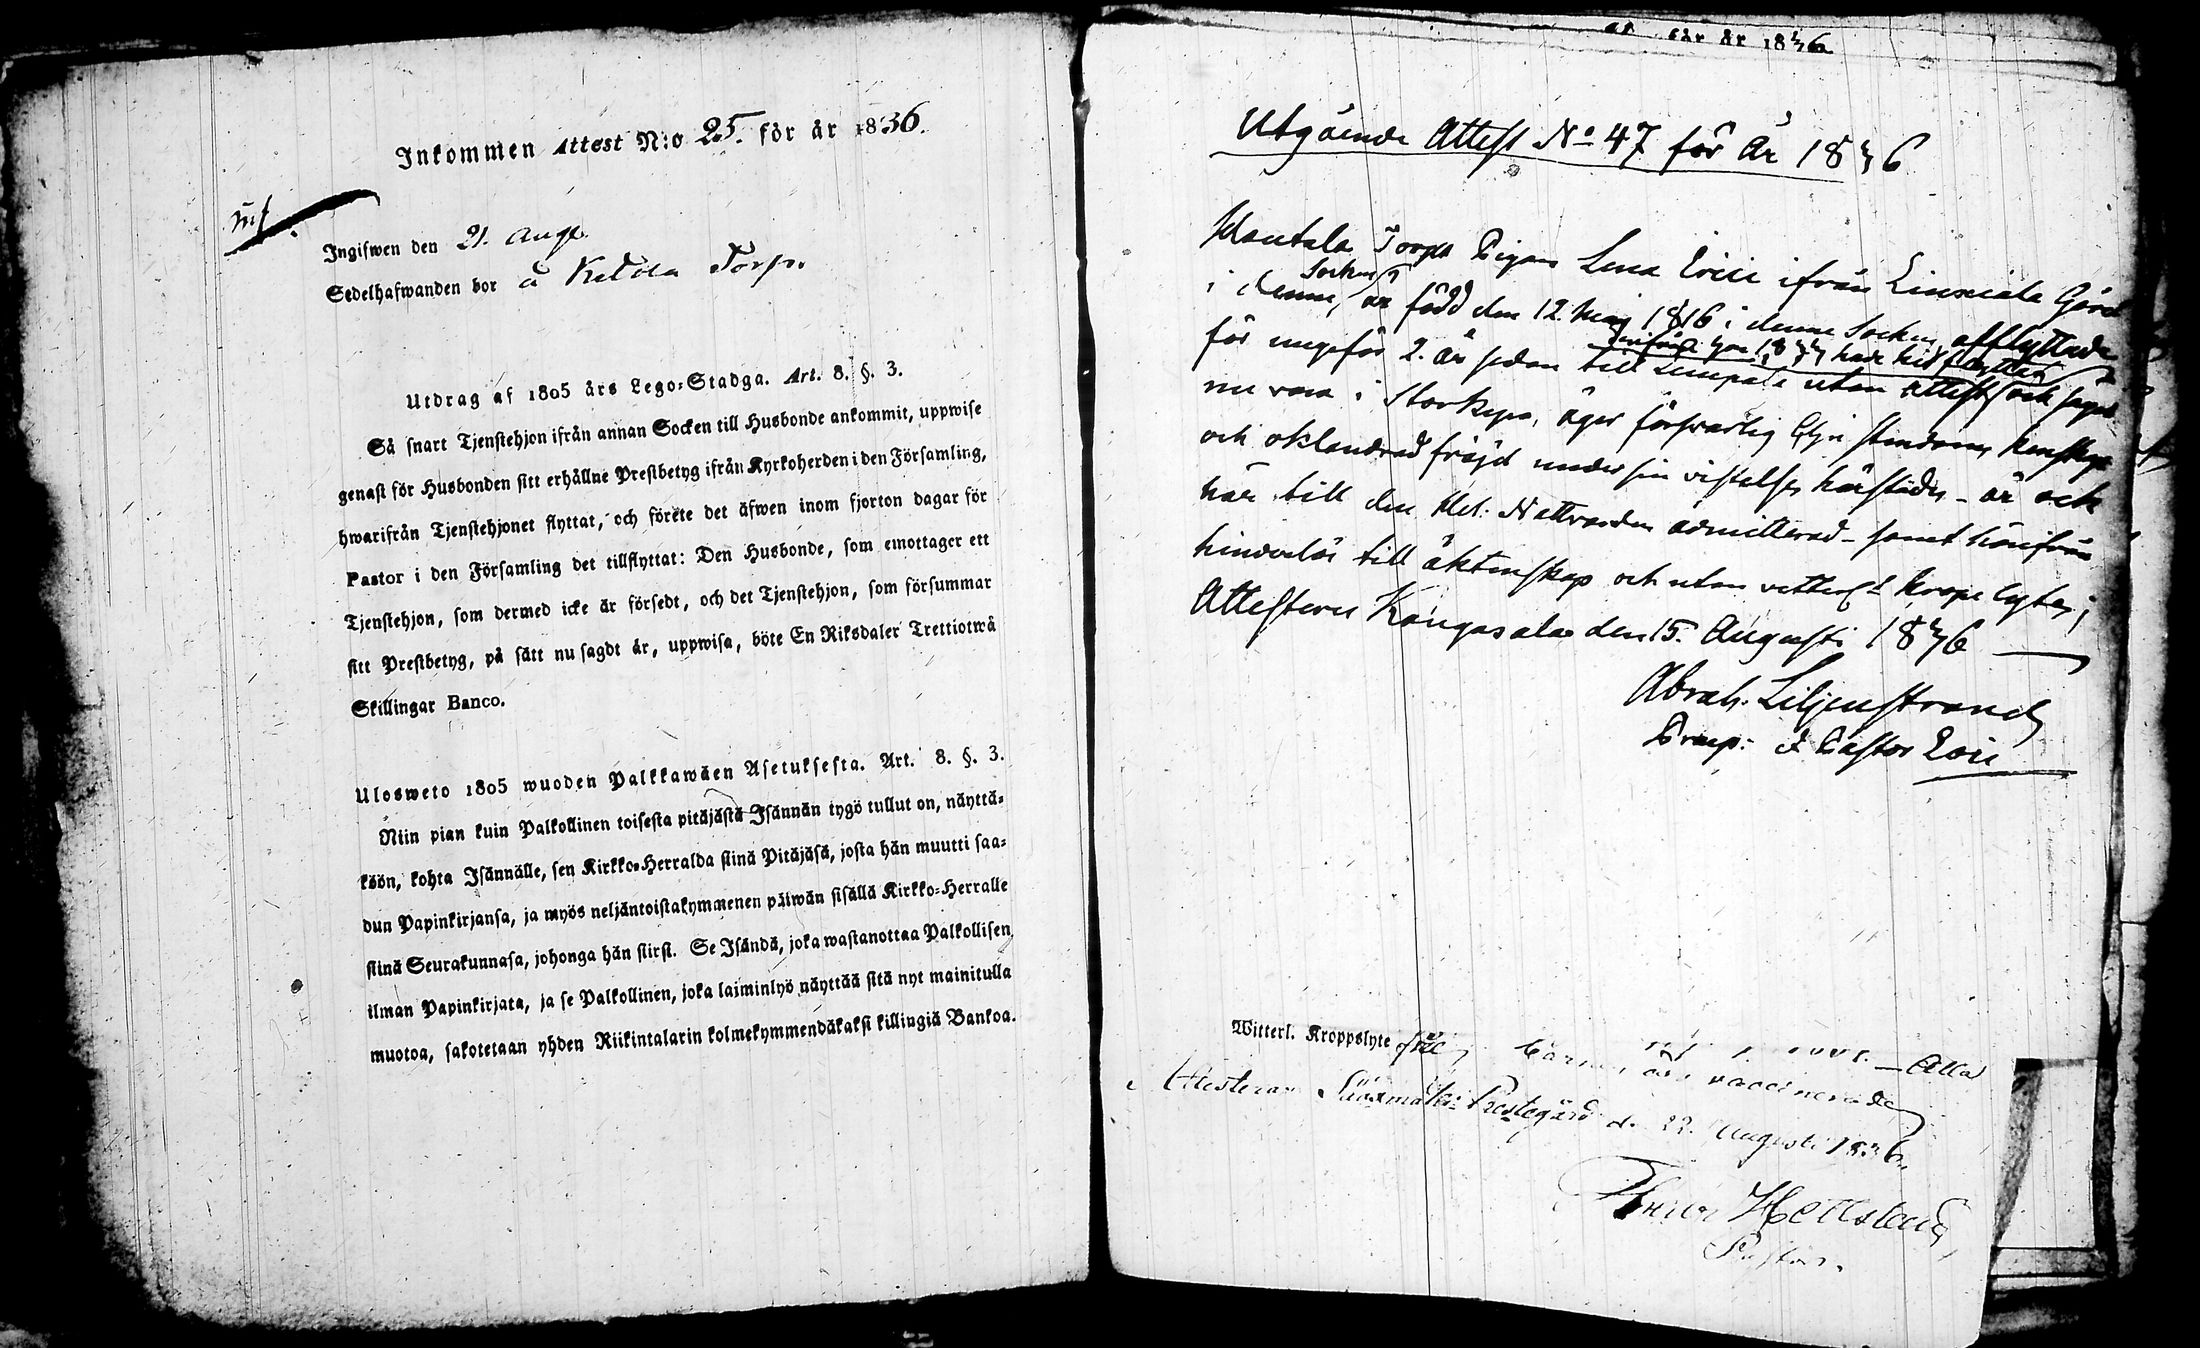 Inkommen Attest N:o 25. för år 1836.
Ingifwen den 21. Aug.
Sedelhafwanden bor å Torp.
Utdrag af 1805 års Lego-Stadga. Art. 8. §. 3.
Så snart Tjenstehjon ifrån annan Socken till Husbonde ankommit, uppwise
genast för Husbonden sitt erhållne Prestbetyg ifrån Kyrkoherden i den Församling,
hwarifrån Tjenstehjonet flyttat, och förete det äfwen inom fjorton dagar för
Pastor i den Församling det tillflyttat: Den Husbonde, som emottager ett
Tjenstehjon, som dermed icke är försedt, och det Tjenstehjon, som försummar
sitt Prestbetyg, på sätt nu sagdt är, uppwisa, böte En Riksdaler Trettiotwå
Skillingar Banco.
Ulosweto 1805 wuoden Palkkawäen Asetuksesta. Art. 8. §. 3.
Niin pian kuin Palkollinen toisesta pitäjästä Isännän tygö tullut on, näyttä-
köön, kohta Isännälle, sen Kirkko-Herralda siinä Pitäjäsä, josta hän muutti saa-
dun Papinkirjansa, ja myös neljäntoistakymmenen päiwän sisällä Kirkko-Herralle
siinä Seurakunnasa, johonga hän siirsi. Se Isändä, joka wastanottaa Palkollisen
ilman Papinkirjata, ja se Palkollinen, joka laiminlyö näyttää sitä nyt mainitulla
muotoa, sakotetaan yhden Riikintalarin kolmekymmendäkaksi killingiä Bankoa.
för år 1836
Utgående Attest No 47 för år 1836
Torps Pigan Lena Erici ifrån Gård
i denne Socken, är född den 12. Maj 1816 i denne Socken, afflyttade
för ungefär 2. år sedan till Lempälä utan attest och säges
nu vara i Storkyro, äger försvarlig Christendoms kunskap
och oklandrad fräjd under sin vistelse härstädes - är ock
här till den Hel. Nattvarden admitterad - samt härifrån
hinderlös till äktenskap och utan vetterl. kropps lyte;
Attesteras Kangasala den 15. Augusti 1836
Abrah. Liljenstrand
Pastor Loci
Witterl. Kroppslyte Alla
Barn äro vaccinerade
Attesteras Sääxmäki Prestegård d. 22. Augusti 1836.
Pastor.